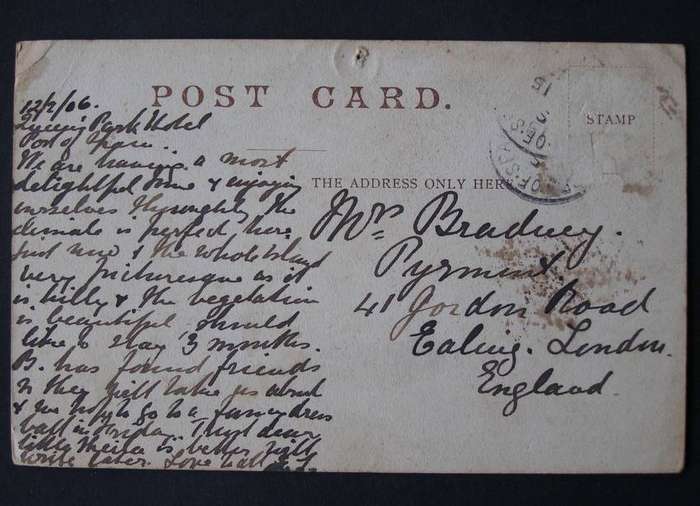 POST CARD.
STAMP
THE ADDRESS ONLY HERE
12/2/06.
Queens Park Hotel
Port of Spain.
We are having a most
delightful time & enjoying
ourselves thoroughly the
climate is perfect here
just now & the whole island
very picturesque as it
is hilly & the vegetation
is beautiful, should
like to stay 3 months.
B. has found friends
so they will take us about
& we hope to go to a fancy dress
ball on Friday. Trust dear
little is better will
write later. Love to all
Mrs Bradney.
Pyrmont
41 Gordon Road
Ealing. London.
England.